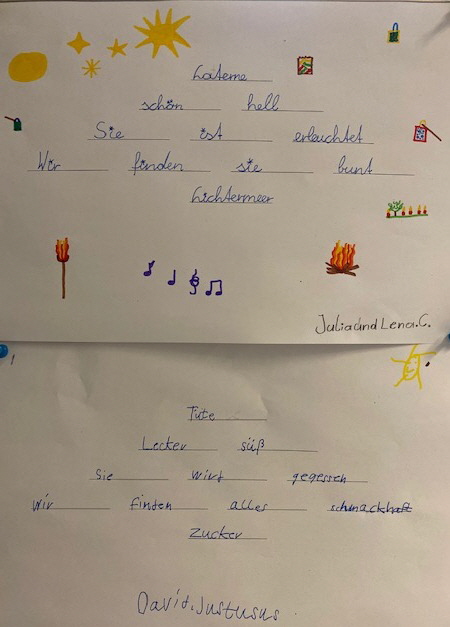 Laterne
schön hell
Sie ist erleuchtet
Wir finden sie bunt
Lichtermeer
Julia und Lena.C.
Tüte
Lecker süß
Sie wird gegessen
Wir finden alles schmackhaft
Zucker
David.Justusus